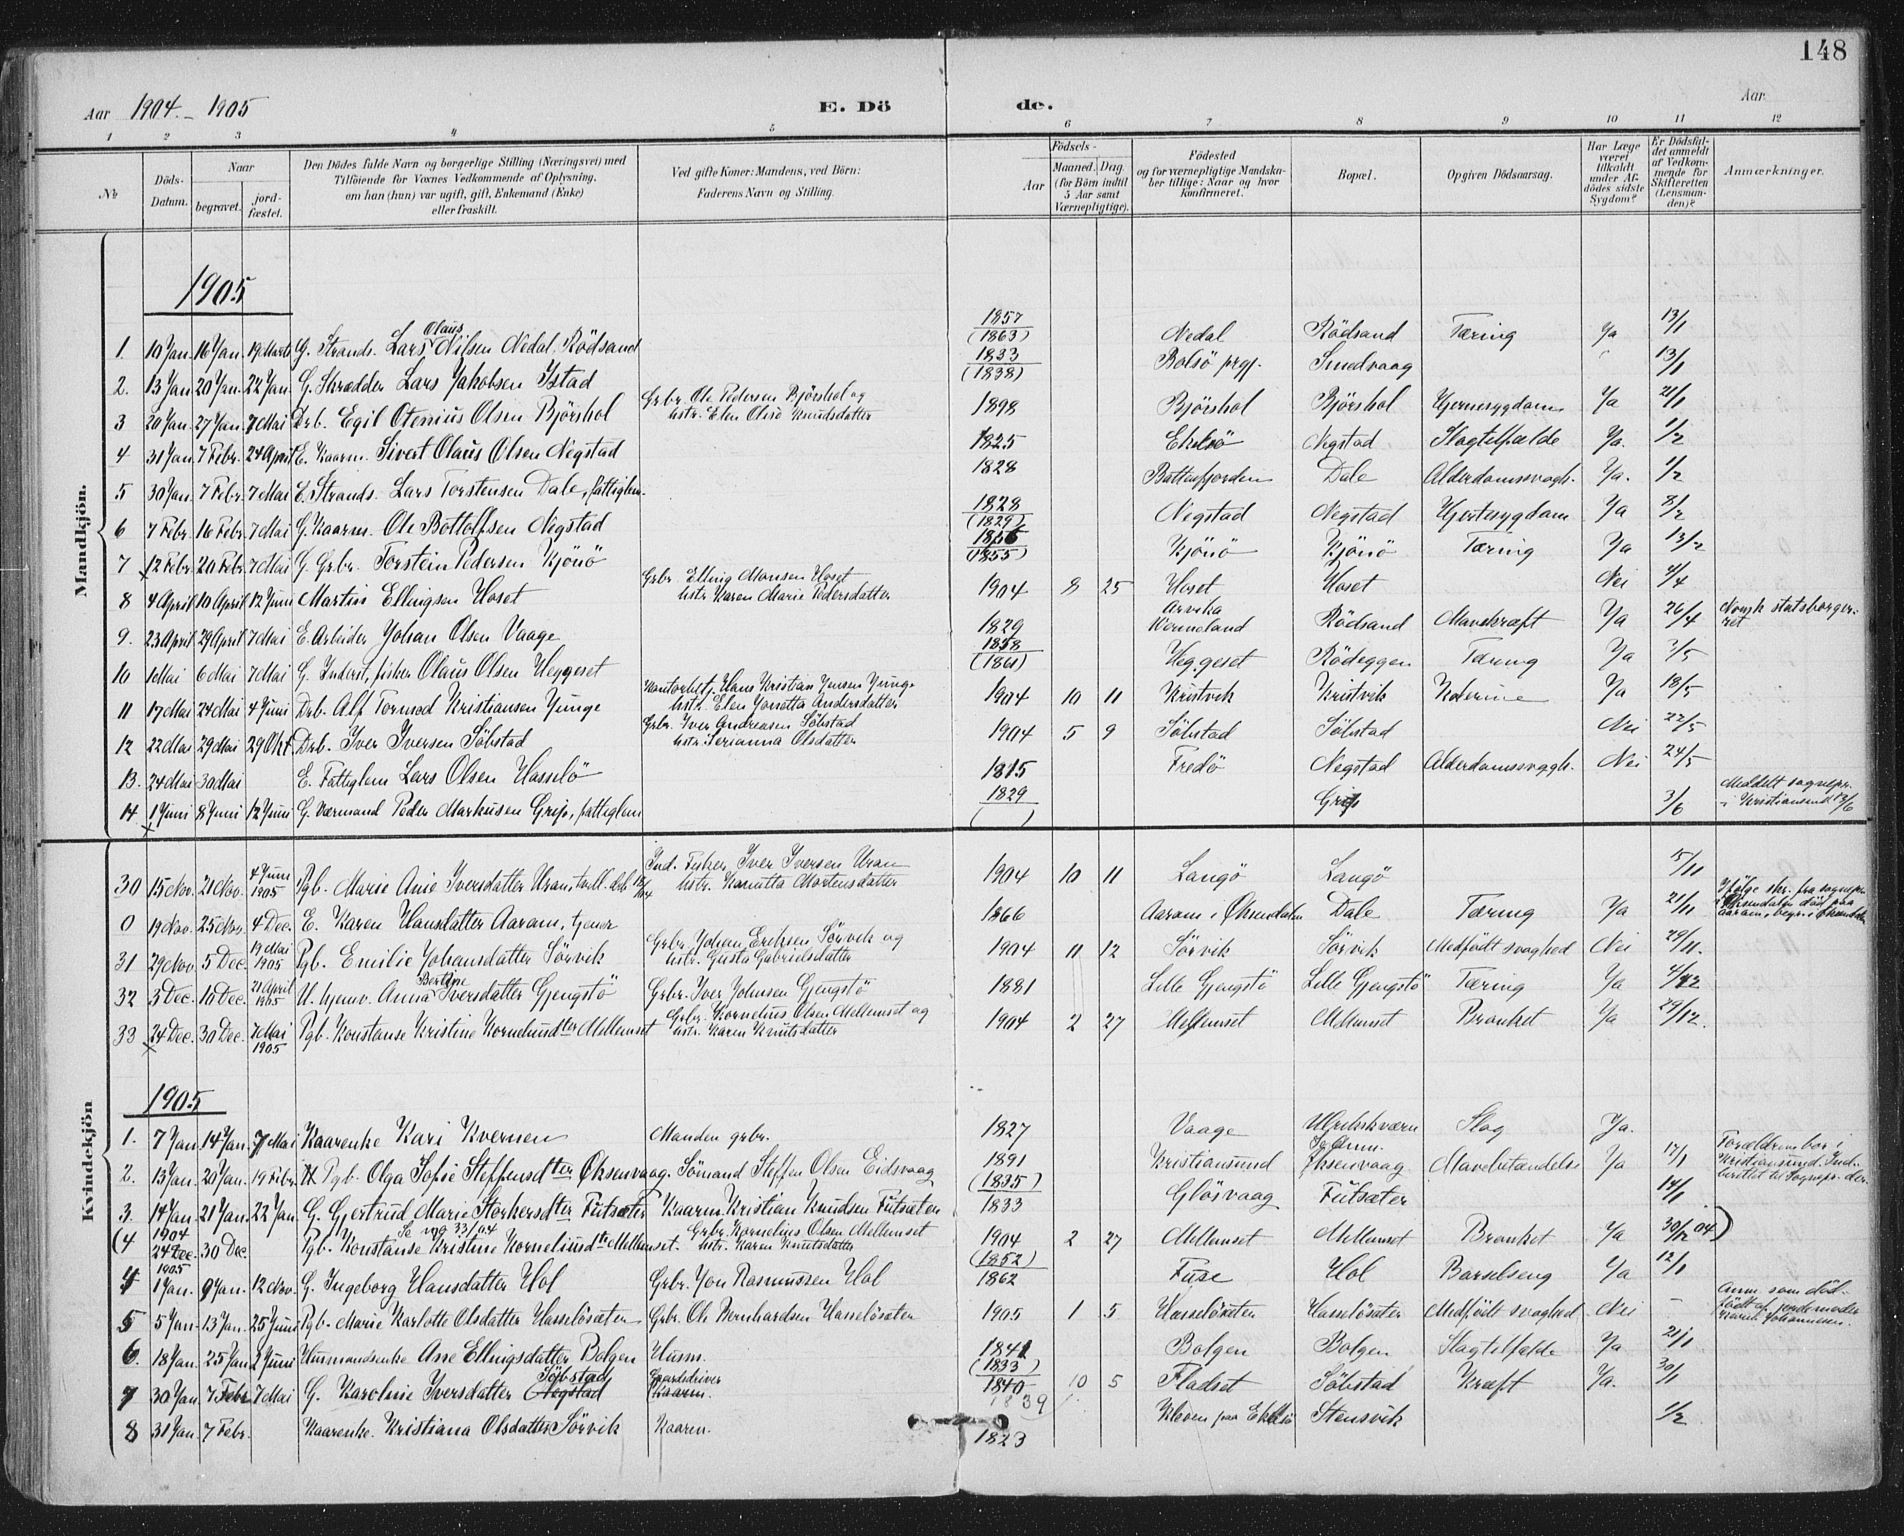 148
Aar 1904.–1905 E. Dö de. Aar
1 2 3 4 5 6 7 8 9 10 11 12
№ Döds-Datum. Naar begravet. jord-fæstet. Den Dödes fulde Navn og borgerlige Stilling (Næringsvei) med Tilföiende for Voxnes Vedkommende af Oplysning, om han (hun) var ugift, gift, Enkemand (Enke) eller fraskilt. Ved gifte Koner: Mandens, ved Börn: Faderens Navn og Stilling. Födsels- Aar Maaned. Dag. (for Börn indtil 5 Aar samt Værnepligtige). Födested og for værnepligtige Mandskaber tillige: Naar og hvor konfirmeret. Bopæl. Opgiven Dödsaarsag. Har Læge været tilkaldt under Afdödes sidste Sygdom? Er Dödsfaldet anmeldt af Vedkommende for Skifteretten (Lensmanden)? Anmærkninger.
Mandkjön.
1905
1. 10 Jan. 16 Jan. 19 Marts G. Strands. Lars Olaus Nilsen Nedal, Rödsand 1857 (1863) Nedal Rödsand Tæring Ja 13/1
2. 13 Jan. 20 Jan. 22 Jan. G. Skrædder Lars Jakobsen Istad 1833 (1838) Bolsö prgj. Smedvaag 13/1
3 20 Jan. 27 Jan. 7 Mai Drb. Egil Otenius Olsen Bjørshol Grbr. Ole Pedersen Bjørshol og hstr. Elen Olise Knudsdatter 1898 Bjørshol Bjørshol Hjernesygdom Ja 21/1
4 31 Jan. 7 Febr. 24 April E. Kaarm. Sivert Olaus Olsen Negstad 1825 Ekelsö Negstad Slagtelfælde Ja. 1/2
5 30 Jan. 7 Febr. 7 Mai E. Strands. Lars Torstensen Dale, fattiglem. 1828 Battenfjorden Dale Alderdomssvagh. Ja. 1/2
6 7 Febr. 16 Febr. 7 Mai G. Kaarm. Ole Bottolfsen Negstad 1828 (1829) Negstad Negstad Hjertesygdom Ja 8/2
7 12 Febr. 20 Febr. 7 Mai G. Grbr. Torstein Pedersen Kjönö (1855) Kjönö Kjönö Tæring Ja 13/2
8 4 April 10 April 12 Juni Martin Ellingsen Hoset Grbr. Elling Monsen Hoset hstr. Karen Marie Pedersdatter 1904 8 25 Hoset Hoset Nei 4/4
9. 23 April 29 April 7 Mai E. Arbeider Johan Olsen Vaage 1829 Arvika Wermeland Rödsand Mavekræft Ja 26/4 Norsk statsborgerret
10 1 Mai 6 Mai 7 Mai G. Inderst, fisker Olaus Olsen Heggeset 1858 (1861) Heggeset Rödeggen Tæring Ja 2/5
11 17 Mai 24 Mai 4 Juni Drb. Alf Tormod Kristiansen Junge Kontorbetj. Hans Kristian Jensen Junge hstr. Elen Jonetta Andersdatter 1904 10 11 Kristvik Kristvik Kolerine Ja 18/5
12 22 Mai 29 Mai 29 Okt. Drb. Iver Iversen Söbstad Grbr. Iver Andreasen Söbstad hstr. Serianna Olsdatter 1904 5 9 Söbstad Söbstad Nei 22/5
13. 24 Mai 30 Mai E. Fattiglem Lars Olsen Hasselö 1815 Fredö Negstad Alderdomssvagh. Nei 24/5
14. 1 Juni 8 Juni 12 Juni G. Værmand Peder Markusen Grip, fattiglem 1829 ( ) Grip 3/6 Meddelt sognepr. i Kristiansund 13/6
Kvindekjön
30 15 Nov. 21 Nov. 4 Juni 1905 Pgb. Marie Anie Iversdatter Uran, tvill. Ind. Fisker Iver Iversen Uran hstr. Karitta Mortensdatter 1904 10 11 Langö Langö 5/11
0 19 Nov. 25 Nov. 4 Dec. E. Karen Hansdatter Aaram, tjener 1866 Aaram i Øksendalen Dale Tæring Ja 21/11 Ifølge skr. fra sognepr. i Øksendalen död paa Aaram, begr. i Øksendalen
31 29 Nov. 5 Dec. 19 Mai 1905 Pgb. Emilie Johansdatter Sörvik Grbr. Johan Eriksen Sörvik og hstr. Gusta Gabrielsdatter 1904 11 12 Sörvik Sörvik Medfödt svaghed Nei 29/11.
32 3 Dec. 10 Dec. 21 April 1905 U. hjemv. Anna Bertine Iversdatter Gjengstö Grbr. Iver Johnsen Gjengstö 1881 Lille Gjengstö Lille Gjengstö Tæring Ja 4/12
33 24 Dec. 30 Dec. 7 Mai 1905 Pgb. Konstanse Kristine Korneliusdter Mellemset Grbr. Kornelius Olsen Mellemset og hstr. Karen Knutsdatter 1904 2 27 Mellemset Mellemset Bronkit Ja 29/12.
1905
1. 7 Jan. 14 Jan. 7 Mai Kaarenke Kari Kvernen Manden grbr. 1827 Vaage Ulrikskværn Slag Ja.
2. 13 Jan. 20 Jan. 19 Febr. Pgb. Olga Sofie Steffensdter Øksenvaag. Sömand Steffen Olsen Eidsvaag 1891 Kristiansund Øksenvaag Mavebetændelse Ja 17/1 Forældrene bor i Kristiansund. Indberettet til Sognepr. der
3. 14 Jan. 21 Jan. 22 Jan. G. Gjertrud Marie Storkersdter Futsæter Kaarm. Kristian Knudsen Futsæter (1835) 1833 Glösvaag Futsæter 14/1
(4 1904 24 Dec. 30 Dec. Se no 33/04 Pgb. Konstanse Kristine Korneliusdtr Mellemset. Grbr. Kornelius Olsen Mellemset hstr. Karen Knutsdatter 1904 2 27 Mellemset Mellemset Bronkit Ja 30/12 04)
4 1905 1 Jan. 9 Jan. 12 Nov. G. Ingeborg Hansdatter Hol Grbr. Jon Rasmussen Hol (1852) 1862 Fuse Hol Barselseng Ja 12/1
5 5 Jan. 13 Jan. 25 Juni Pgb. Marie Karlotte Olsdatter Hasselösæten Grbr. Ole Bernhardsen Hasselösæter 1905 1 5 Hasselösæten Hasselösæter Medfödt svaghed Nei – Anm. som dödfödt af jordemoder Karen Johannesen.
6. 18 Jan. 25 Jan. 2 Juni Husmandsenke Ane Ellingsdatter Bolgen Husm. 1841 Bolgen Bolgen Slagtelfælde Ja 21/1
7 30 Jan. 7 Febr. 7 Mai G. Karoline Iversdatter Negstad Söbstad Gaardsdriver Kaarm. (1833) 1840 1839 10 5 Fladset Söbstad Kræft Ja. 30/1
8 31 Jan. 7 Febr. Kaarenke. Kristiana Olsdatter Sörvik Kaarm. 1823 Kleven paa Ekelsö Stensvik 1/2